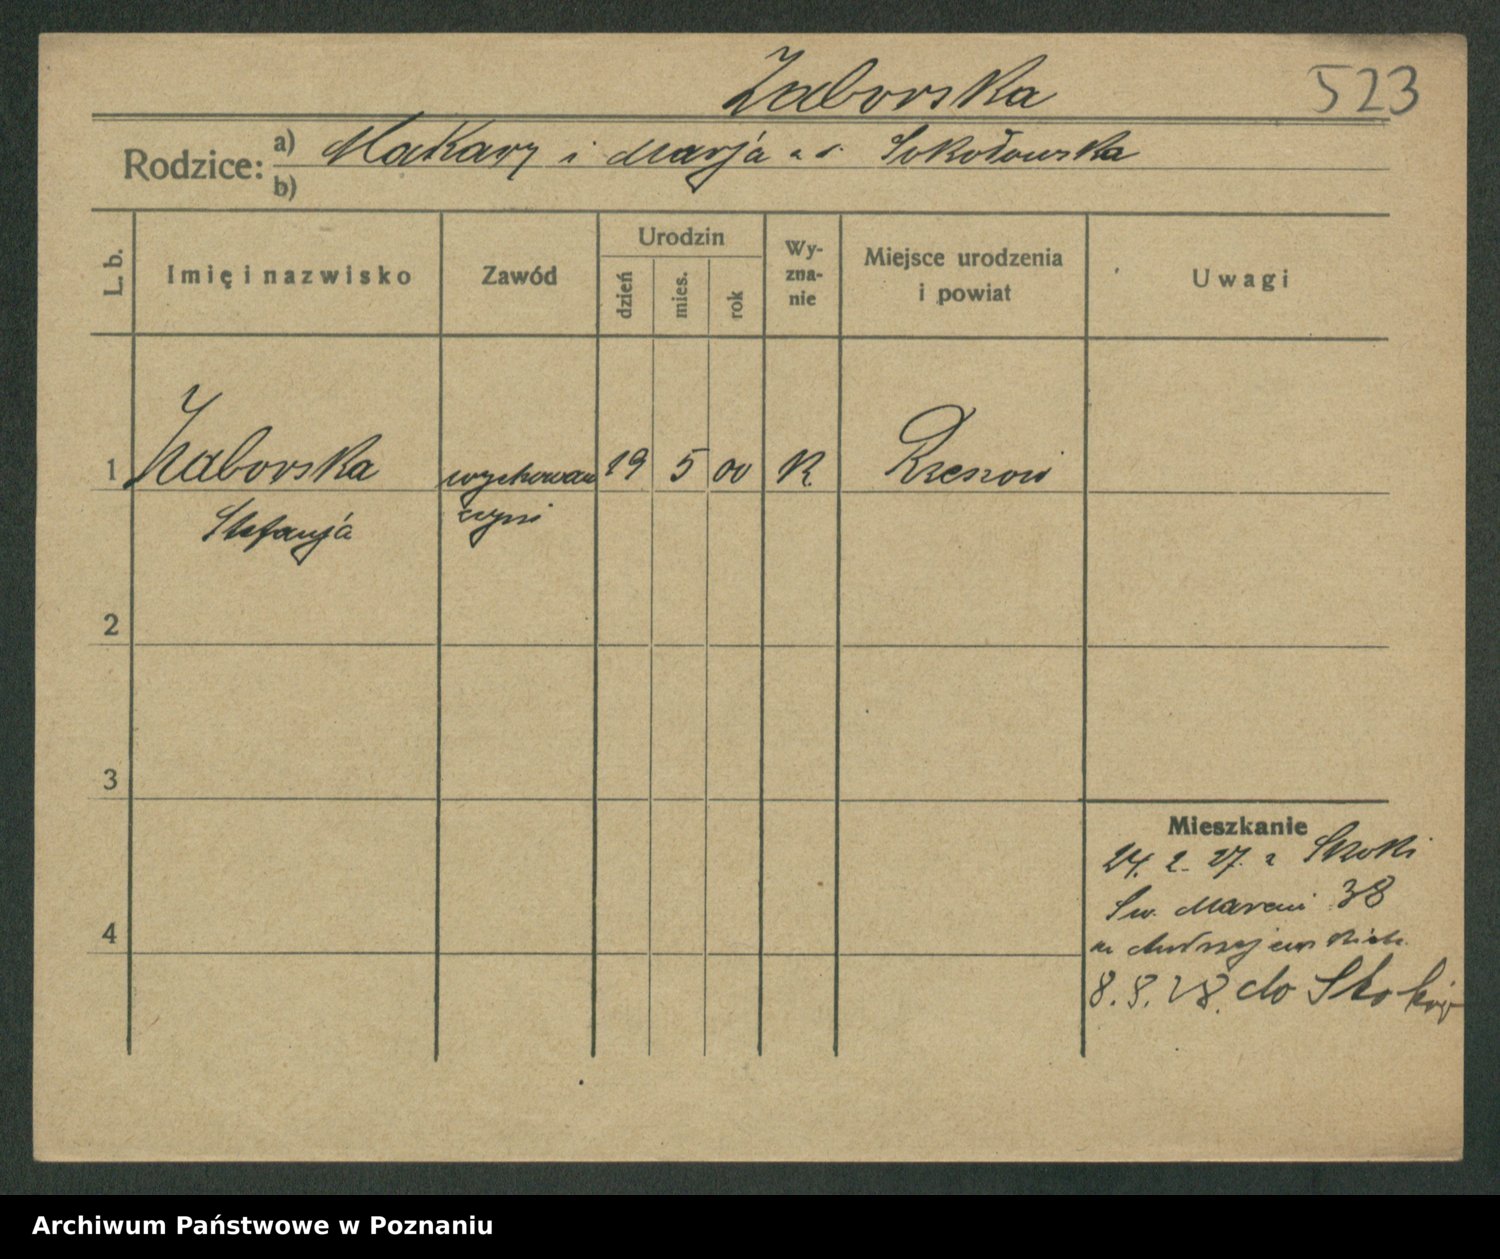 Zaborska
523
Rodzice: a) Makary i Marja z d. Sokołowska
b)
L. b.
Imię i nazwisko
Zawód
Urodzin
dzień
mies.
rok
Wy-
zna-
nie
Miejsce urodzenia
i powiat
Uwagi
1 Zaborska wychowaw 19 5 00 R. Rzeszów
Stefanja czyni
2
3
4
Mieszkanie
24. 2. 27. z Skoki
Św. Marcin 38
8. 8. 28. do Skoków
Archiwum Państwowe w Poznaniu